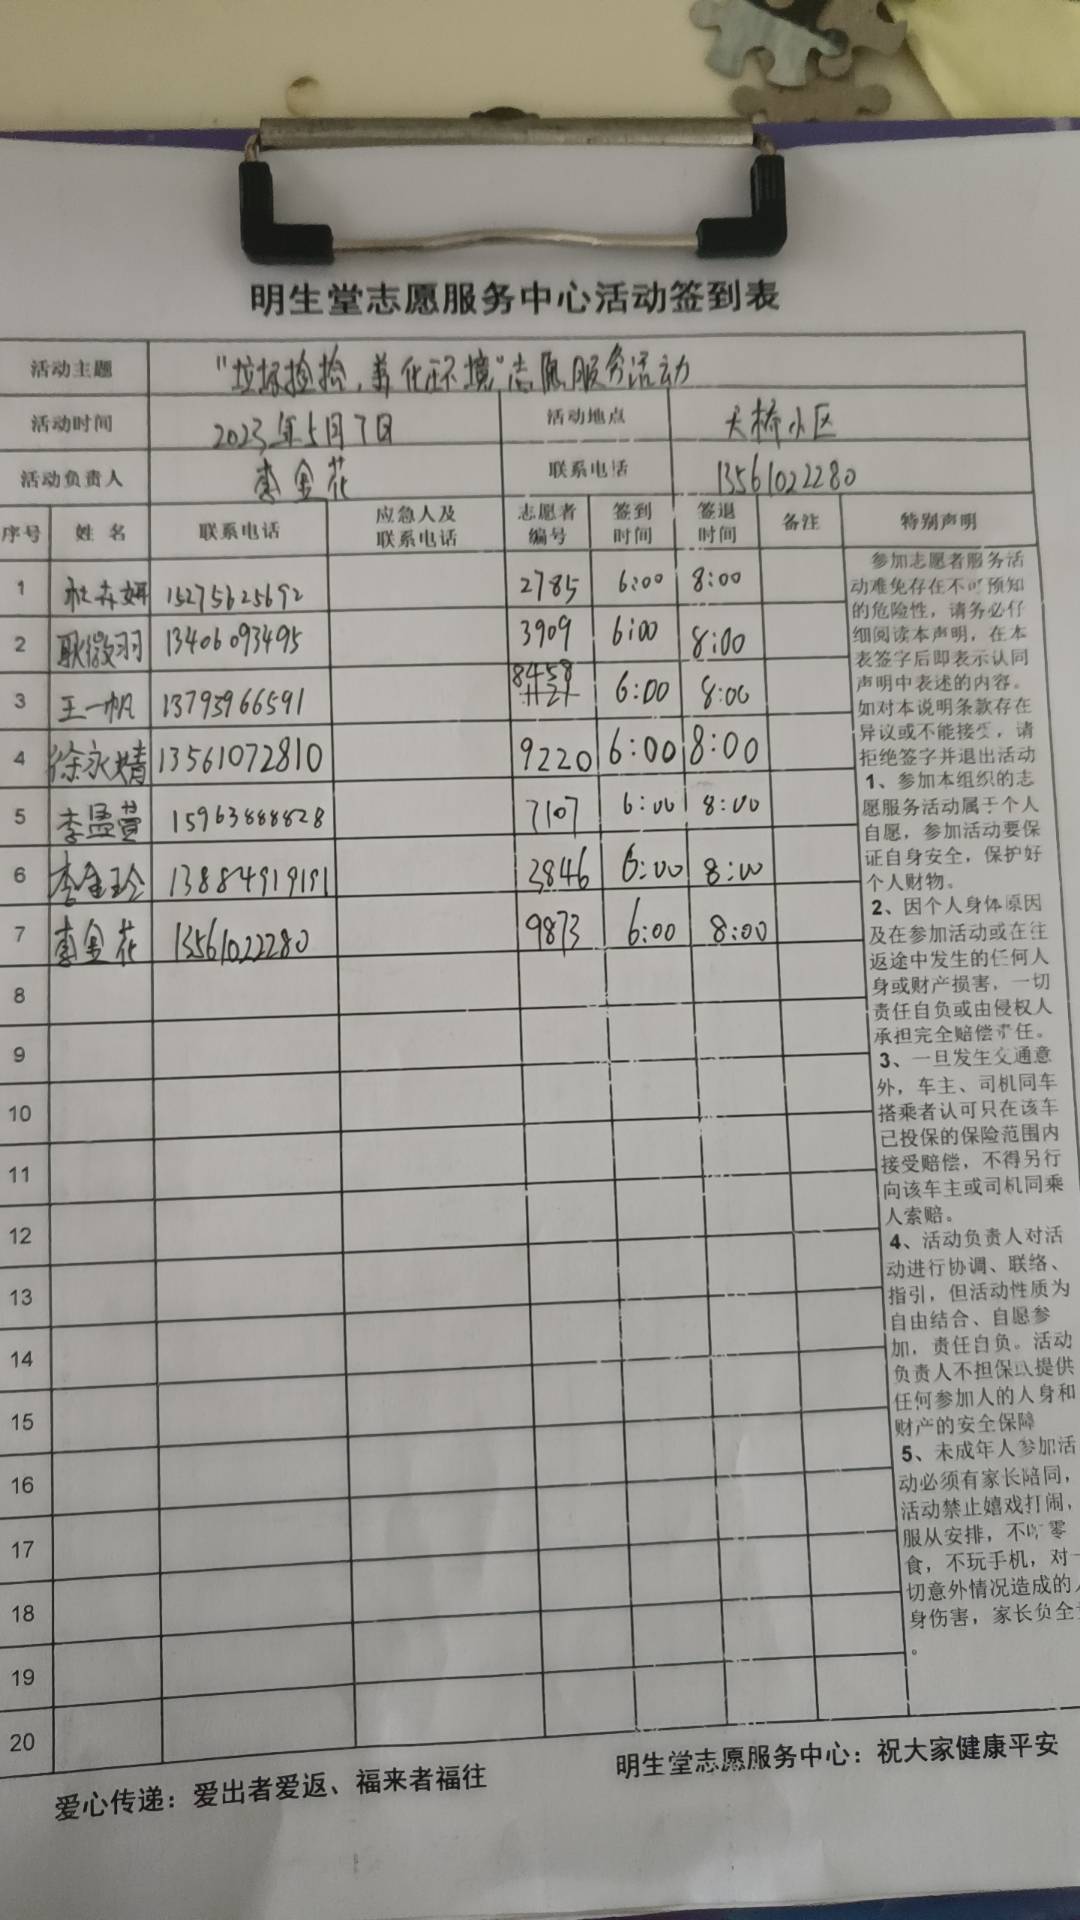 明生堂志愿服务中心活动签到表
活动主题 "垃圾捡拾，美化环境"志愿服务活动
活动时间 2023年5月7日 活动地点 天桥小区
活动负责人 李金花 联系电话 13561022280
序号 姓名 联系电话 应急人及联系电话 志愿者编号 签到时间 签退时间 备注 特别声明
1 杜卉妍 15275625692 2785 6:00 8:00
2 耿微羽 13406093495 3909 6:00 8:00
3 王一帆 13795966591 8458 6:00 8:00
4 徐永婧 13561072810 9220 6:00 8:00
5 李孟萱 15963888828 7107 6:00 8:00
6 李金玲 13884919191 3846 6:00 8:00
7 李金花 13561022280 9873 6:00 8:00
8
9
10
11
12
13
14
15
16
17
18
19
20
参加志愿者服务活
动难免存在不可预知
的危险性，请务必仔
细阅读本声明，在本
表签字后即表示认同
声明中表述的内容。
如对本说明条款存在
异议或不能接受，请
拒绝签字并退出活动
1、参加本组织的志
愿服务活动属于个人
自愿，参加活动要保
证自身安全，保护好
个人财物。
2、因个人身体原因
及在参加活动或在往
返途中发生的任何人
身或财产损害，一切
责任自负或由侵权人
承担完全赔偿责任。
3、一旦发生交通意
外，车主、司机同车
搭乘者认可只在该车
已投保的保险范围内
接受赔偿，不得另行
向该车主或司机同乘
人索赔。
4、活动负责人对活
动进行协调、联络、
指引，但活动性质为
自由结合、自愿参
加，责任自负。活动
负责人不担保或提供
任何参加人的人身和
财产的安全保障
5、未成年人参加活
动必须有家长陪同，
活动禁止嬉戏打闹，
服从安排，不吃零
食，不玩手机，对一
切意外情况造成的人
身伤害，家长负全
。
爱心传递：爱出者爱返、福来者福往
明生堂志愿服务中心：祝大家健康平安